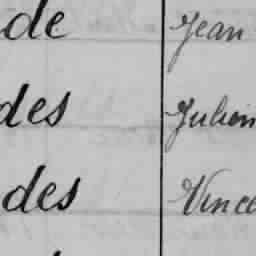 de Jean
des Julien
des Vince